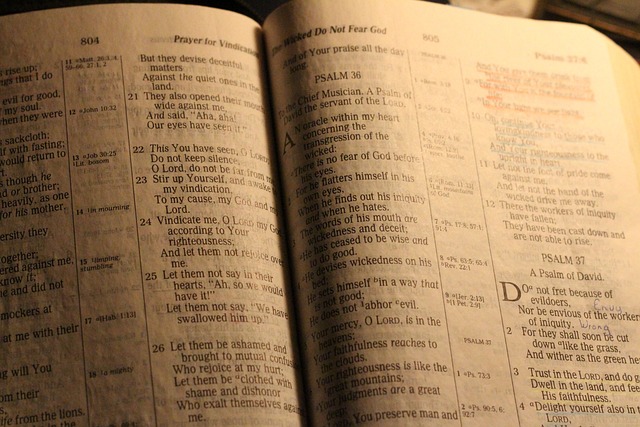 804
Prayer for Vindication
rise up;
ngs that I do
evil for good,
my soul.
when they were
sackcloth;
lf with fasting;
would return to
though he
nd or brother;
heavily, as one
for his mother.
ersity they
ogether;
ered against me,
know it;
e and did not
mockers at
at me with their
ng will You
om their
life from the lions.
12 John 10:32
13 Job 30:25
Lit. bosom
14 in mourning
15 limping,
stumbling
17 [Hab. 1:13]
18 a mighty
But they devise deceitful
matters
Against the quiet ones in the
land.
21 They also opened their mouth
wide against me,
And said, "Aha, aha!
Our eyes have seen it."
22 This You have seen, O LORD;
Do not keep silence.
O Lord, do not be far from me.
23 Stir up Yourself, and awake to
my vindication,
To my cause, my God and my
Lord.
24 Vindicate me, O LORD my God,
according to Your
righteousness;
And let them not rejoice over
me.
25 Let them not say in their
hearts, "Ah, so we would
have it!"
Let them not say, "We have
swallowed him up."
26 Let them be ashamed and
brought to mutual confusion
Who rejoice at my hurt;
Let them be clothed with
shame and dishonor
Who exalt themselves against
me.
The Wicked Do Not Fear God
805
Psalm 37:4
And of Your praise all the day
long.
PSALM 36
To the Chief Musician. A Psalm of
David the servant of the LORD.
AN oracle within my heart
concerning the
transgression of the
wicked:
There is no fear of God before
his eyes.
For he flatters himself in his
own eyes,
When he finds out his iniquity
and when he hates.
The words of his mouth are
wickedness and deceit;
He has ceased to be wise and
to do good.
He devises wickedness on his
bed;
He sets himself in a way that
is not good;
He does not abhor evil.
Your mercy, O LORD, is in the
heavens;
Your faithfulness reaches to
the clouds.
Your righteousness is like the
great mountains;
Your judgments are a great
deep;
You preserve man and
PSALM 37
1 Ps. 73:3
2 Ps. 90:5, 6;
92:7
11 Let not the foot of pride come
against me,
And let not the hand of the
wicked drive me away.
12 There the workers of iniquity
have fallen;
They have been cast down and
are not able to rise.
PSALM 37
A Psalm of David.
DO not fret because of
evildoers,
Envy
Nor be envious of the workers
of iniquity.
Wrong
2 For they shall soon be cut
down like the grass,
And wither as the green he
3 Trust in the LORD, and do g
Dwell in the land, and fee
His faithfulness.
4 Delight yourself also in t
LORD,